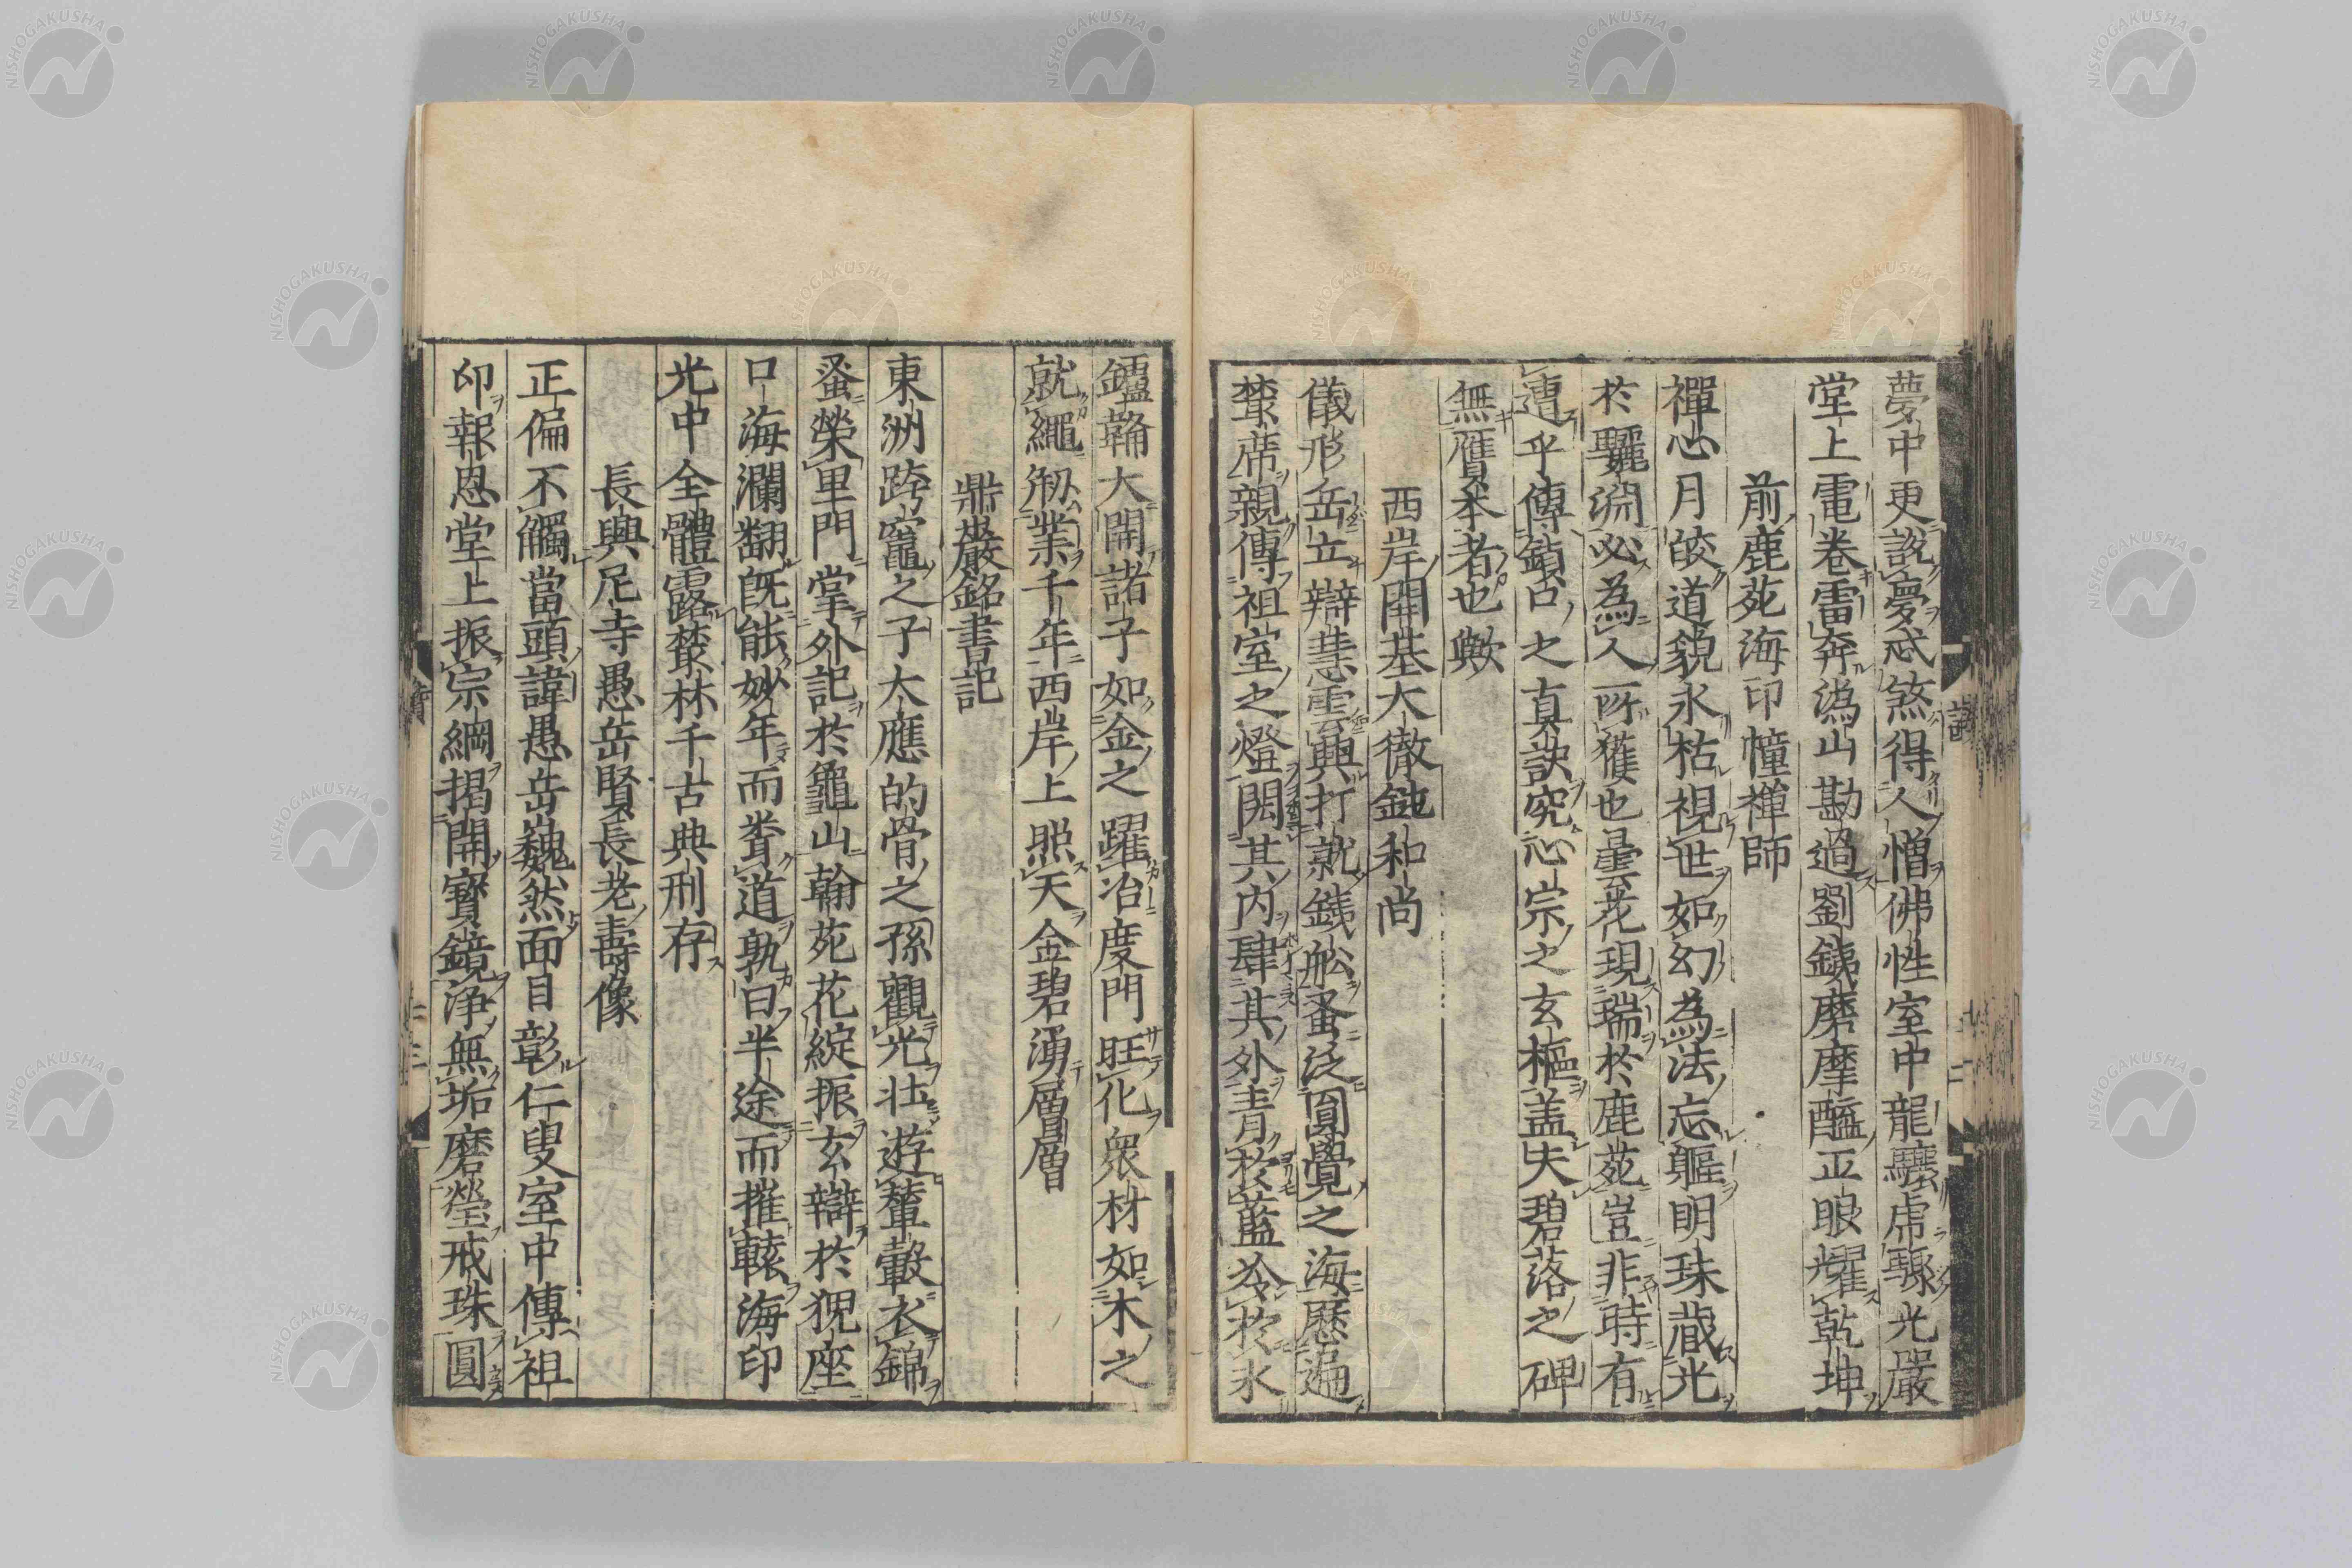 夢中更説夢忒煞得人憎佛性室中龍驤虎驟光嚴
堂上電卷雷奔潙山勘過劉鐡磨摩醯正眼耀乾坤
前鹿苑海印幢禅師
禪心月皎道貌氷枯視世如幻為法忘軀明珠蔵光
於驪淵必為人所獲也曇花現瑞於鹿苑豈非時有
遭乎傳鎮口之真訣究心宗之玄樞盖夫碧落之碑
無贋本者也歟
西岸開基大徹鈍和尚
儀形岳立辯慧雲興打就銕舩蚤泛圓覺之海歷遍
叢席親傳祖室之燈閎其内肆其外青於藍冷於氷
鑪鞴大開諸子如金之躍冶度門旺化衆材如木之
就繩剏業千年西岸上照天金碧湧層層
鼎巖銘書記
東洲跨竈之子大應的骨之孫觀光壮遊輦轂衣錦
蚤榮里門掌外記於龜山翰苑花綻振玄辯於猊座
口海瀾翻既能妙年而粪道孰曰半途而摧轅海印
光中全體露叢林千古典刑存
長興尼寺愚岳賢長老壽像
正偏不觸當頭諱愚岳巍然面目彰仁叟室中傳祖
印報恩堂上振宗綱揭開寳鏡浄無垢磨瑩戒珠圓
NISHOGAKUSHA